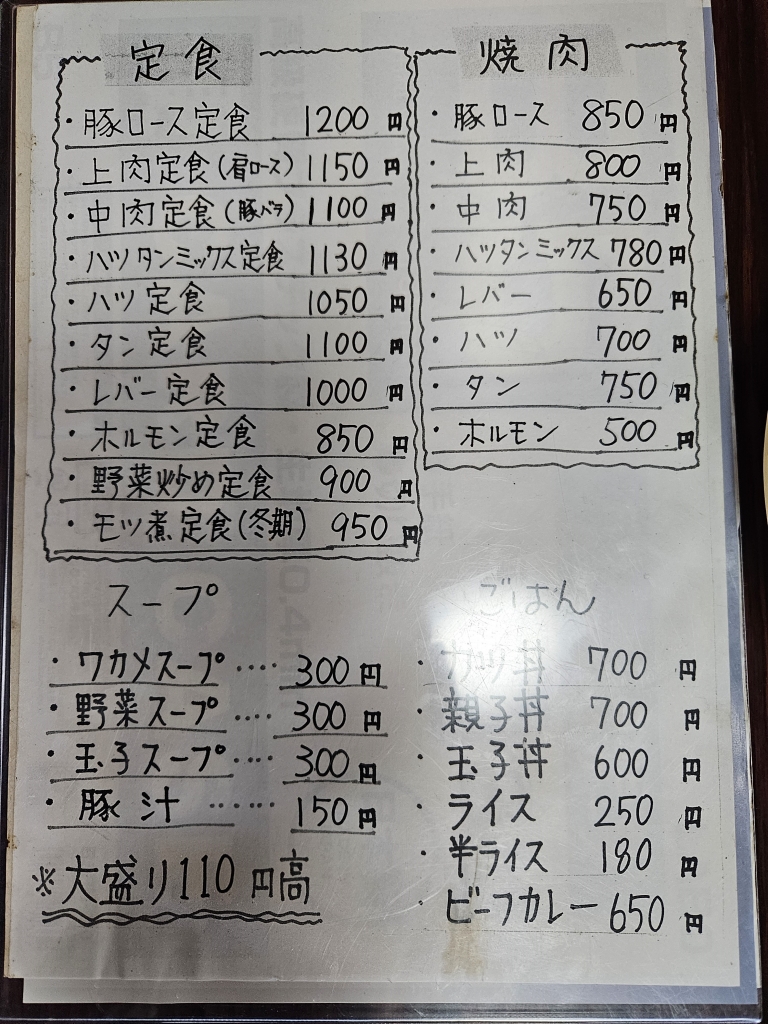 定食
・豚ロース定食 1200円
・上肉定食(肩ロース) 1150円
・中肉定食(豚バラ) 1100円
・ハツタンミックス定食 1130円
・ハツ定食 1050円
・タン定食 1100円
・レバー定食 1000円
・ホルモン定食 850円
・野菜炒め定食 900円
・モツ煮定食(冬期) 950円
焼肉
・豚ロース 850円
・上肉 800円
・中肉 750円
・ハツタンミックス 780円
・レバー 650円
・ハツ 700円
・タン 750円
・ホルモン 500円
スープ
・ワカメスープ‥‥ 300円
・野菜スープ‥‥ 300円
・玉子スープ‥‥ 300円
・豚汁‥‥‥ 150円
※大盛り110円高
ごはん
・カツ丼 700円
・親子丼 700円
・玉子丼 600円
・ライス 250円
・半ライス 180円
・ビーフカレー 650円